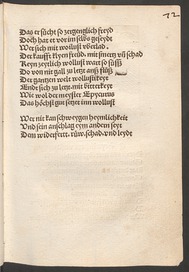 72
Das er sůcht so zergenglich freyd
Doch hat er vor im selbs geseydt
Wer sich mit wollust überlad.
Der kaufft kleyn freüd. mit smertz vñ schad
Keyn zeytlich wollust wart so süß
Do von nit gall zu letz auß flüß
Der gantzen welt wollustikeyt
Ende sich zu letz mit bitterkeyt
Wie wol der meyster Epycurus
Das höchst gut setzet inn wollust
Wer nit kan schweygen heymlicheit
Und sein anschlag eym andern seyt
Dem widerfert. rüw. schad. vnd leydt